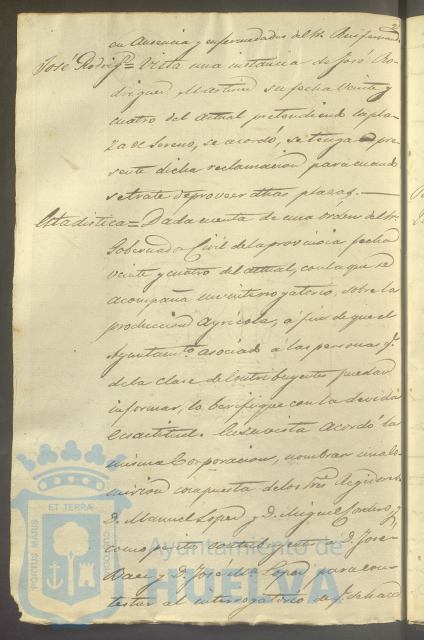 en Ausencia y enfermedades del Sr.
José Rodrigz = Vista una instancia de José Ro-
driguez Martin su fecha veinte y
cuatro del actual pretendiendo la pla-
za de Sereno, se acordó, se tenga pre-
sente dicha reclamacion para cuando
se trate de proveer dhas plazas.
Estadistica = Dada cuenta de una órden del Sr.
Gobernador Civil de la provincia fecha
veinte y cuatro del actual, con la que se
acompaña un interrogatorio, sobre la
produccion Agrícola, á fin de que el
Ayuntamto asociado á las personas q.
de la clase de Contribuyentes puedan
informar, lo berifique con la devida
Exactitud. En su vista acordó la
misma Corporacion, nombrar una Co-
mision compuesta de los Sres Regidores
D. Manuel Lopez y D. Miguel Cordero, y
como peritos contribuyentes á D. José
Baez y D. José de la Lopez para con-
testar al interrogatorio de q. se hace
PORTUS MARIS ET TERRÆ CUSTODIA
Ayuntamiento de
HUELVA